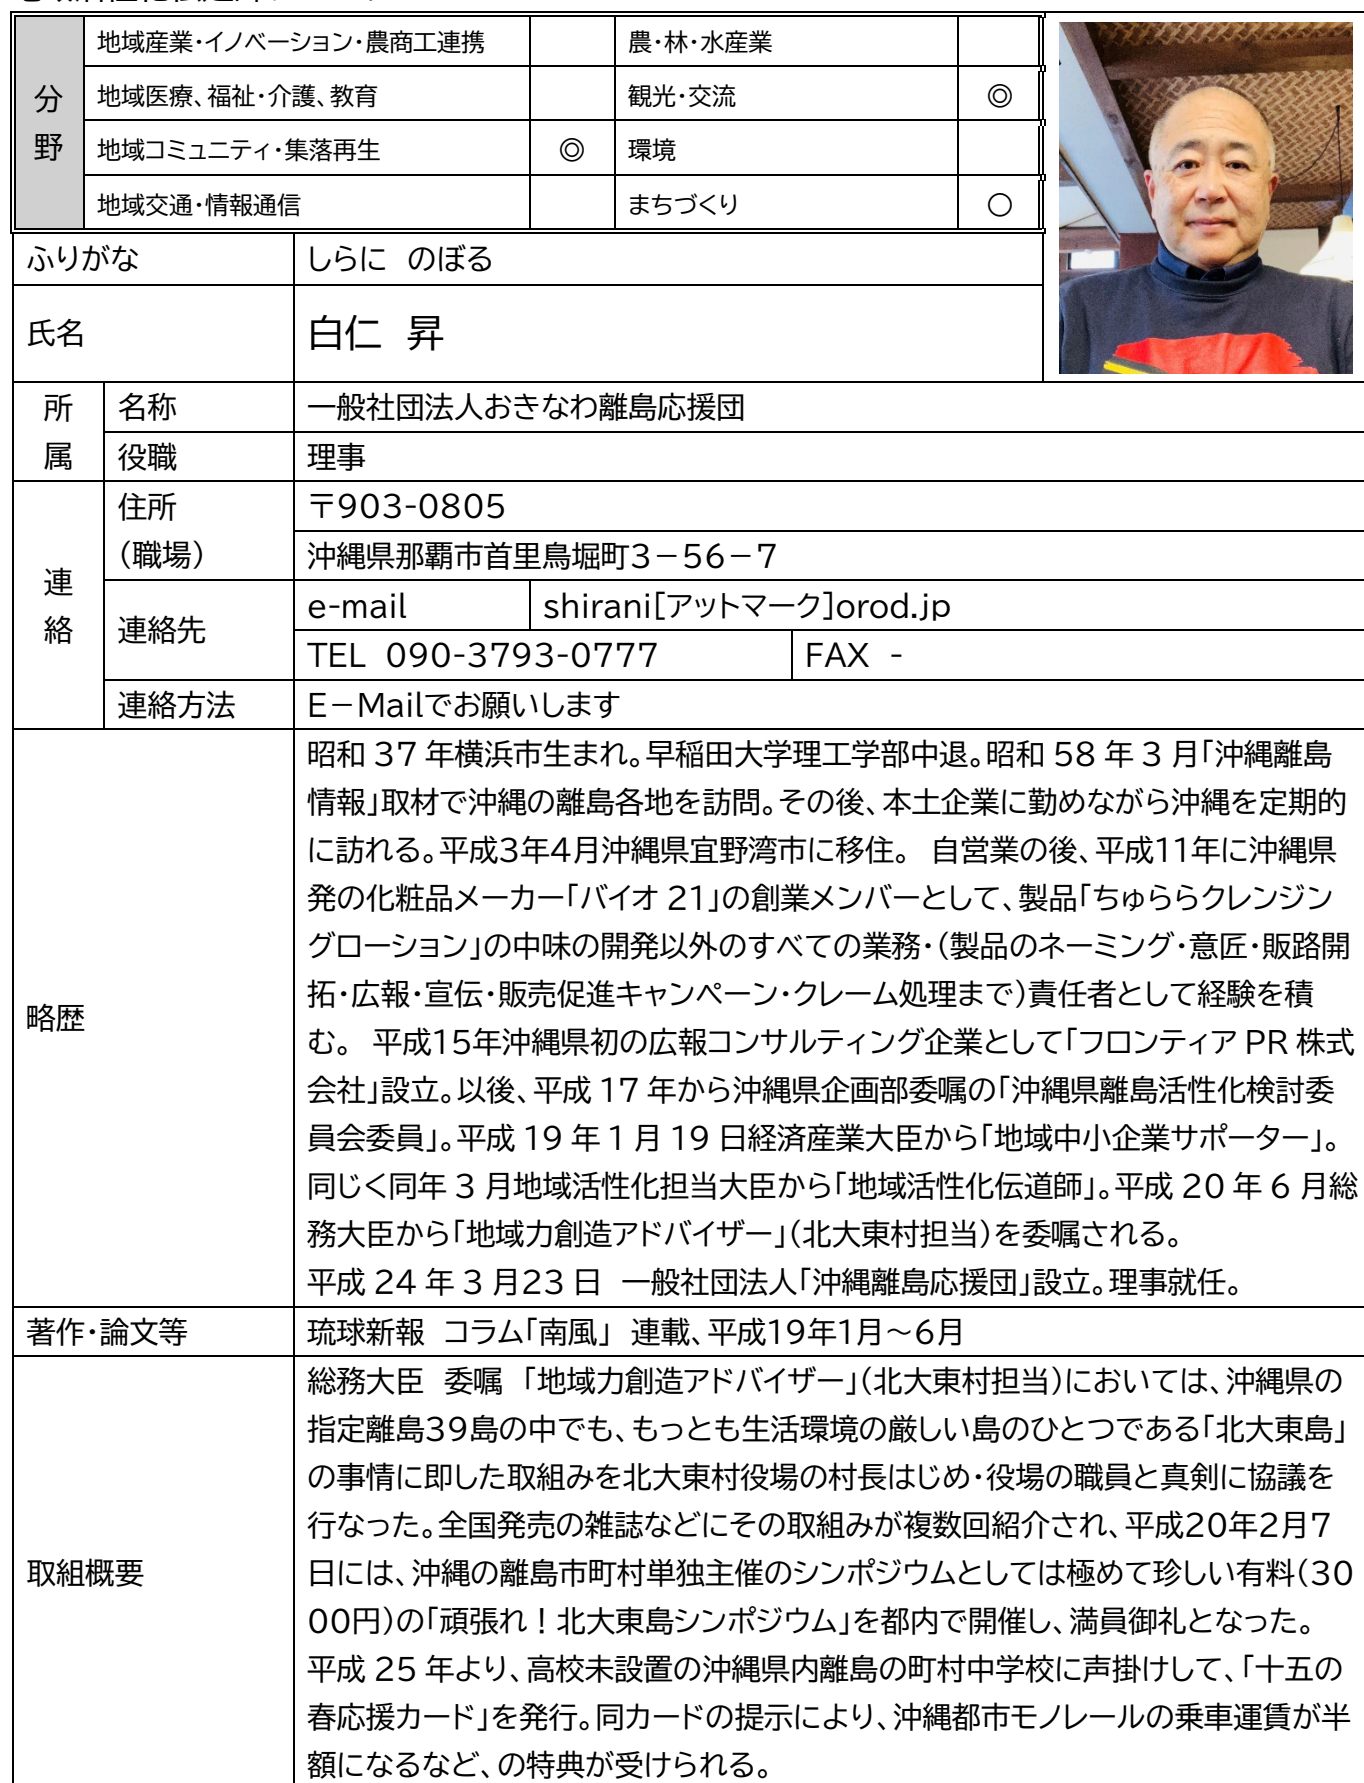 分野
地域産業・イノベーション・農商工連携
農・林・水産業
地域医療、福祉・介護、教育
観光・交流 ◎
地域コミュニティ・集落再生 ◎
環境
地域交通・情報通信
まちづくり ○
ふりがな しらに のぼる
氏名 白仁 昇
所属 名称 一般社団法人おきなわ離島応援団
役職 理事
連絡 住所（職場） 〒903-0805
沖縄県那覇市首里鳥堀町3－56－7
連絡先 e-mail shirani[アットマーク]orod.jp
TEL 090-3793-0777 FAX -
連絡方法 E－Mailでお願いします
略歴
昭和 37 年横浜市生まれ。早稲田大学理工学部中退。昭和 58 年 3 月「沖縄離島
情報」取材で沖縄の離島各地を訪問。その後、本土企業に勤めながら沖縄を定期的
に訪れる。平成3年4月沖縄県宜野湾市に移住。 自営業の後、平成11年に沖縄県
発の化粧品メーカー「バイオ 21」の創業メンバーとして、製品「ちゅららクレンジン
グローション」の中味の開発以外のすべての業務・（製品のネーミング・意匠・販路開
拓・広報・宣伝・販売促進キャンペーン・クレーム処理まで）責任者として経験を積
む。 平成15年沖縄県初の広報コンサルティング企業として「フロンティア PR 株式
会社」設立。以後、平成 17 年から沖縄県企画部委嘱の「沖縄県離島活性化検討委
員会委員」。平成 19 年 1 月 19 日経済産業大臣から「地域中小企業サポーター」。
同じく同年 3 月地域活性化担当大臣から「地域活性化伝道師」。平成 20 年 6 月総
務大臣から「地域力創造アドバイザー」（北大東村担当）を委嘱される。
平成 24 年 3 月23 日 一般社団法人「沖縄離島応援団」設立。理事就任。
著作・論文等 琉球新報 コラム「南風」 連載、平成19年1月～6月
取組概要
総務大臣 委嘱 「地域力創造アドバイザー」（北大東村担当）においては、沖縄県の
指定離島39島の中でも、もっとも生活環境の厳しい島のひとつである「北大東島」
の事情に即した取組みを北大東村役場の村長はじめ・役場の職員と真剣に協議を
行なった。全国発売の雑誌などにその取組みが複数回紹介され、平成20年2月7
日には、沖縄の離島市町村単独主催のシンポジウムとしては極めて珍しい有料（30
00円）の「頑張れ！北大東島シンポジウム」を都内で開催し、満員御礼となった。
平成 25 年より、高校未設置の沖縄県内離島の町村中学校に声掛けして、「十五の
春応援カード」を発行。同カードの提示により、沖縄都市モノレールの乗車運賃が半
額になるなど、の特典が受けられる。